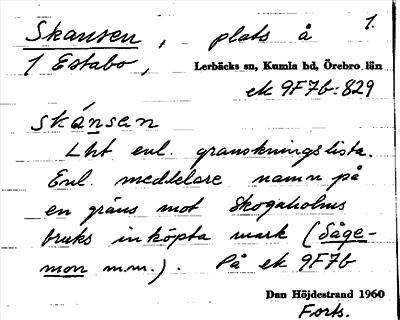 Skansen, plats å 1.
1 Estabo, Lerbäcks sn, Kumla hd, Örebro län
ek 9F7b:829
skánsen
Lht enl. granskningslista.
Enl. meddelare namn på
en gräns mot Skogaholms
bruks inköpta mark (Såge-
mon m.m.). På ek 9F7b
Dan Höjdestrand 1960
Forts.